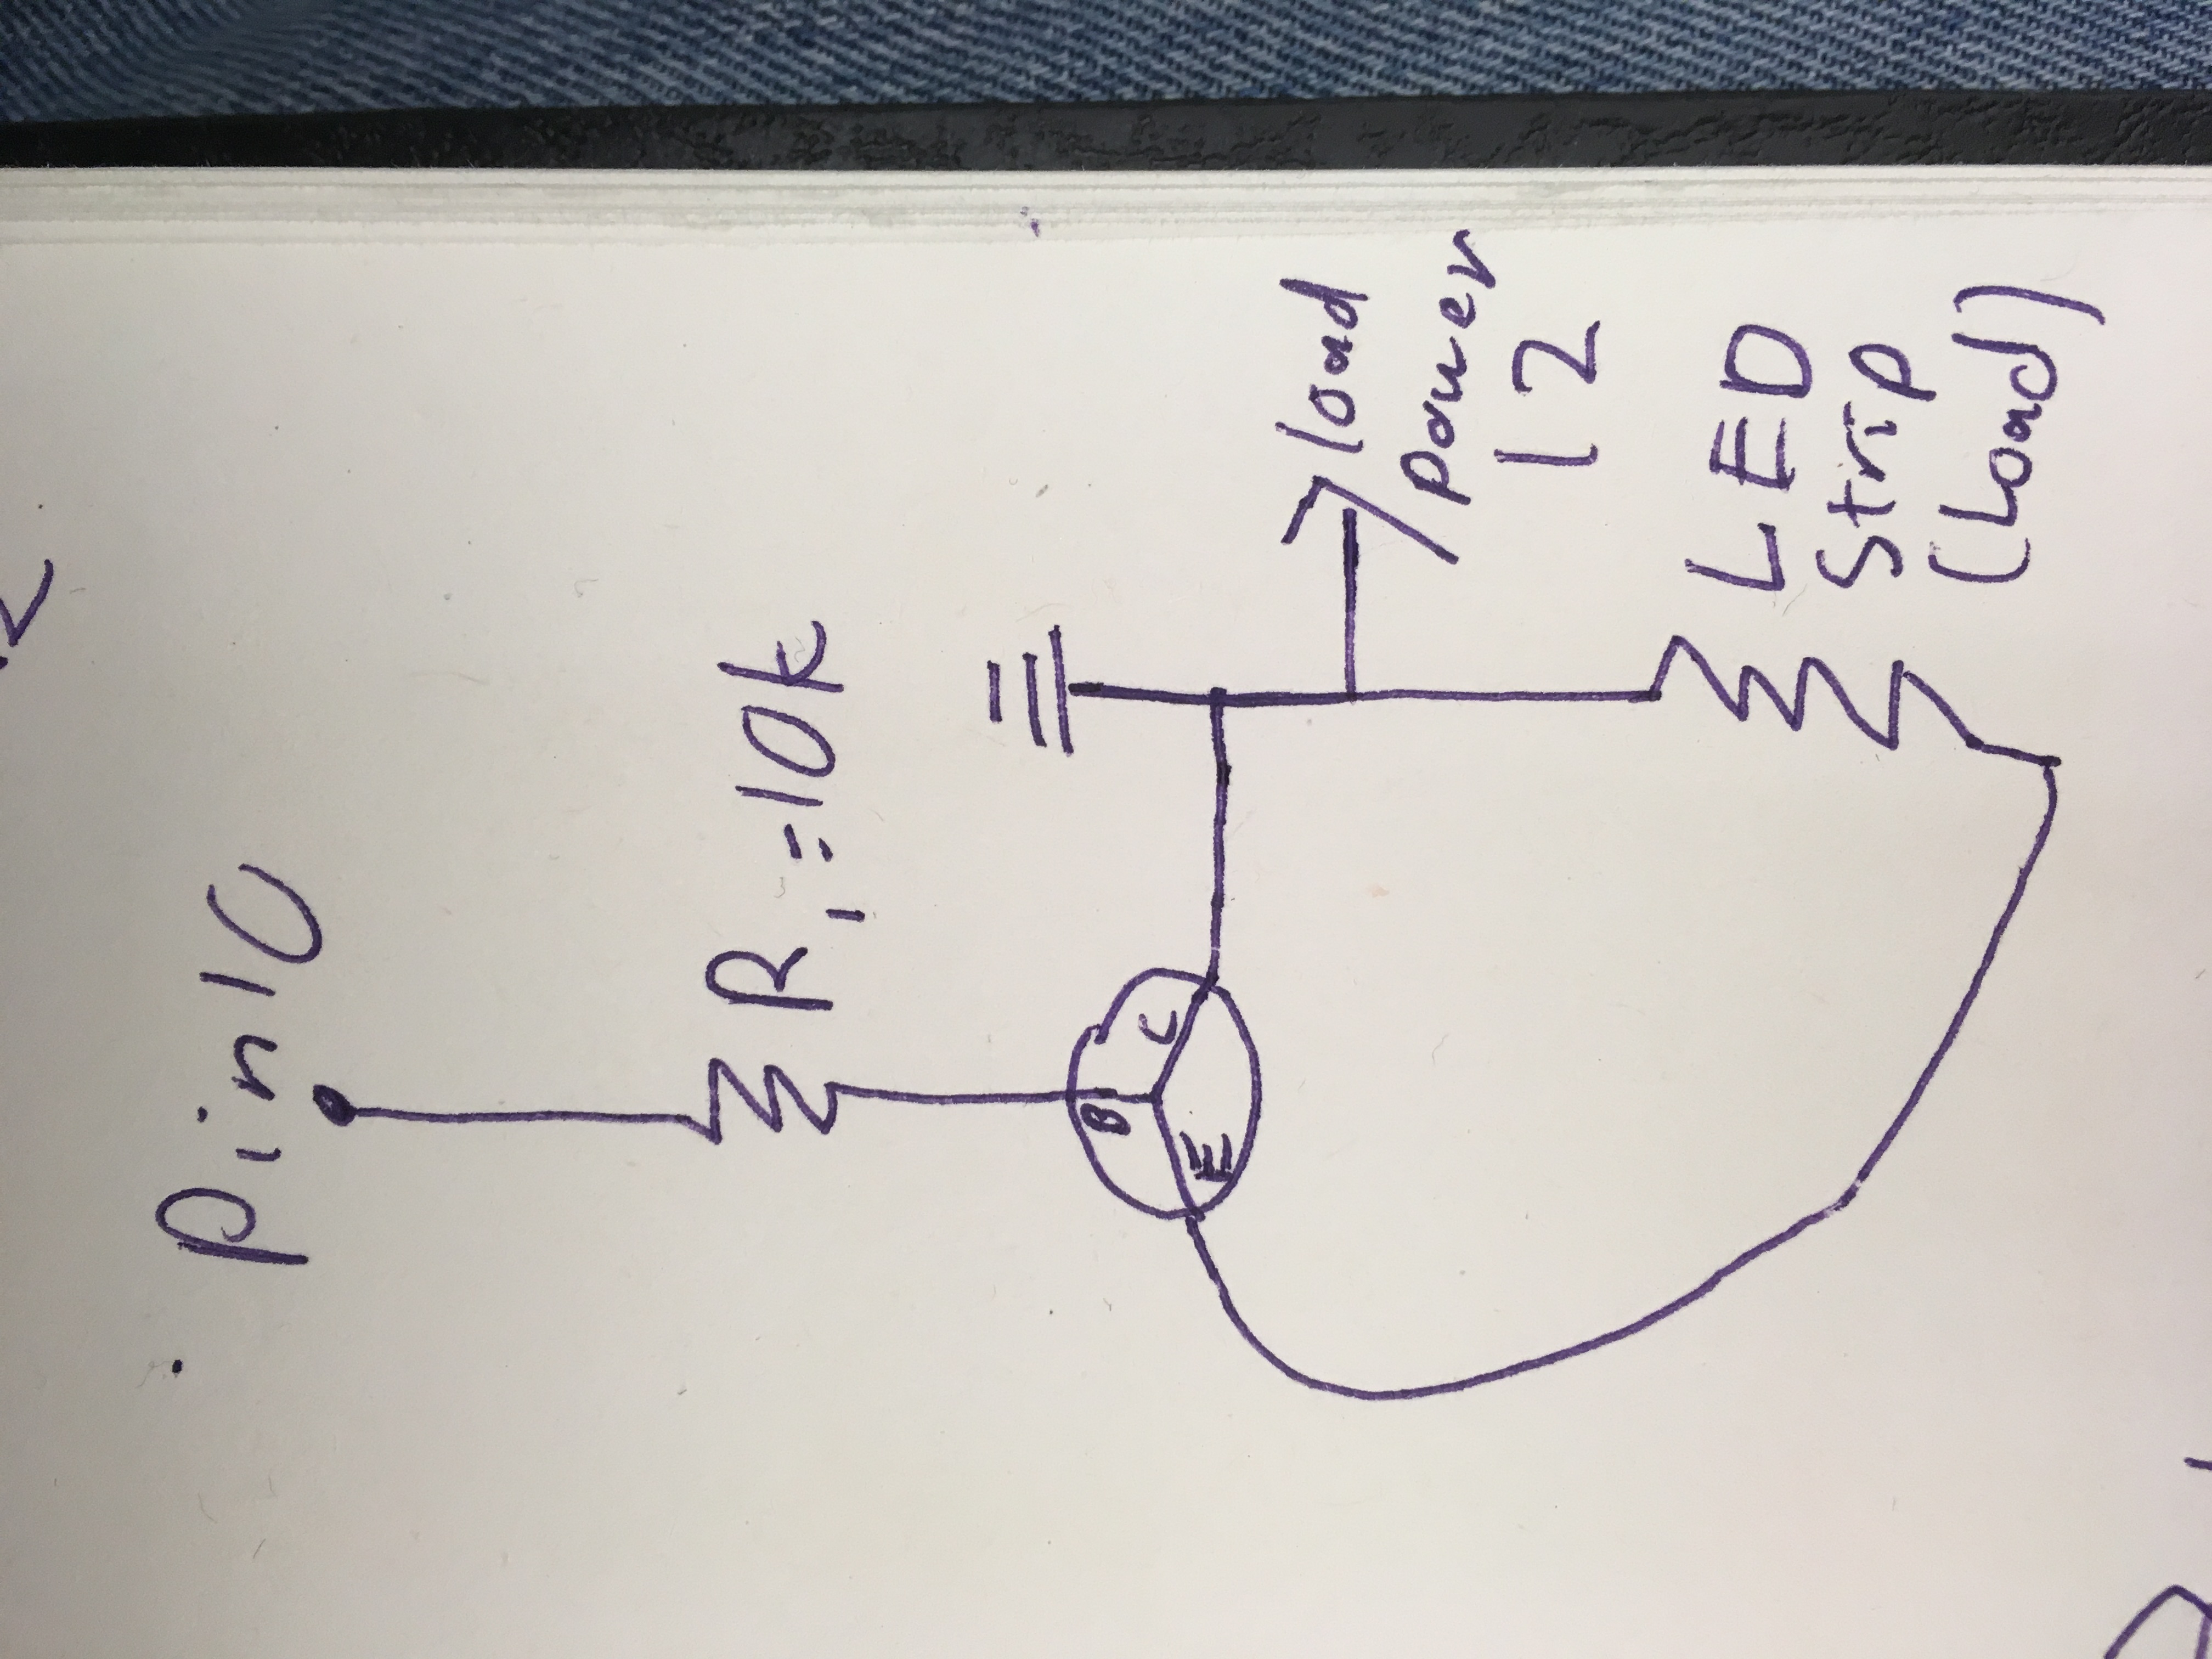 Pin10
R1=10k
B
C
E
load
power
12
LED
Strip
(Load)